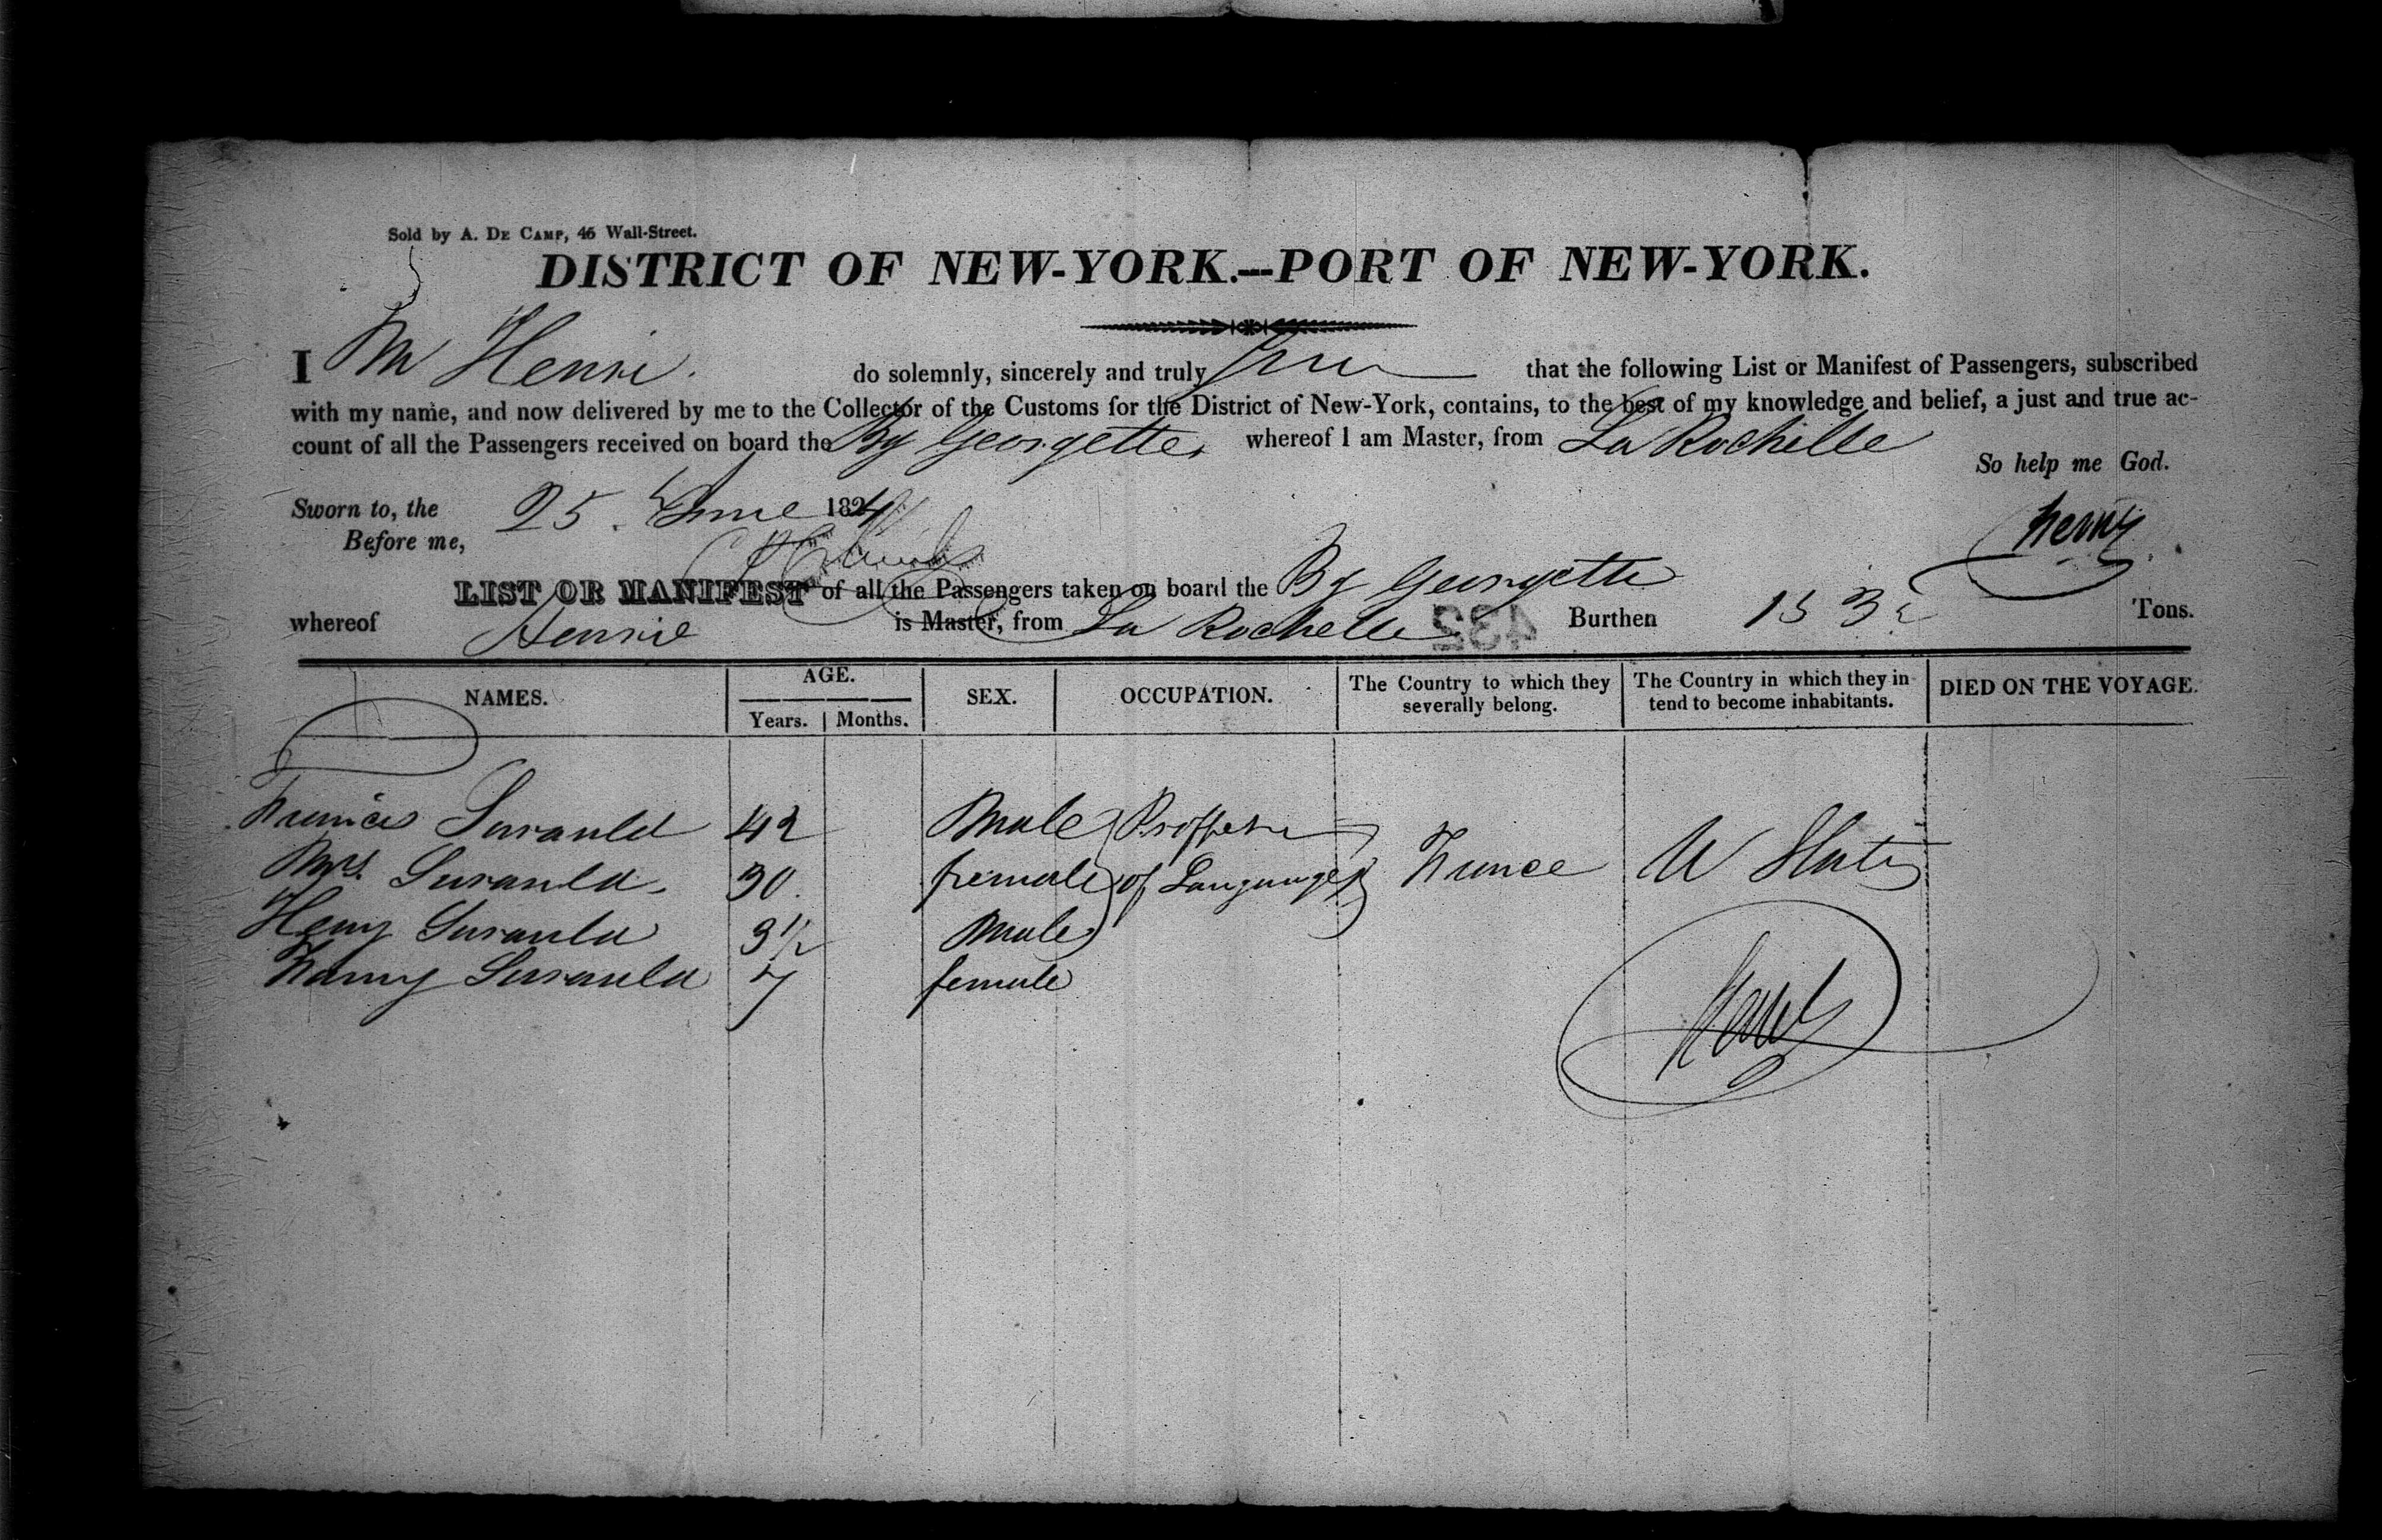 Sold by A. De Camp, 46 Wall-Street.
DISTRICT OF NEW-YORK.---PORT OF NEW-YORK.
I M Henri. do solemnly, sincerely and truly that the following List or Manifest of Passengers, subscribed
with my name, and now delivered by me to the Collector of the Customs for the District of New-York, contains, to the best of my knowledge and belief, a just and true ac-
count of all the Passengers received on board the Bg Georgette, whereof I am Master, from La Rochelle
So help me God.
Sworn to, the 25. June 1824
Before me,
Henry
LIST OR MANIFEST of all the Passengers taken on board the Bg Georgette
whereof Henrie is Master, from La Rochelle Burthen 153 Tons.
432
NAMES. AGE. SEX. OCCUPATION. The Country to which they severally belong. The Country in which they intend to become inhabitants. DIED ON THE VOYAGE.
Years. Months.
Francis Surauld 42 Male
Mrs. Suraula. 30. female of Languages France U States
Henry Suraula 3 1/2 Male
Fanny Suraula 7 female
Henry